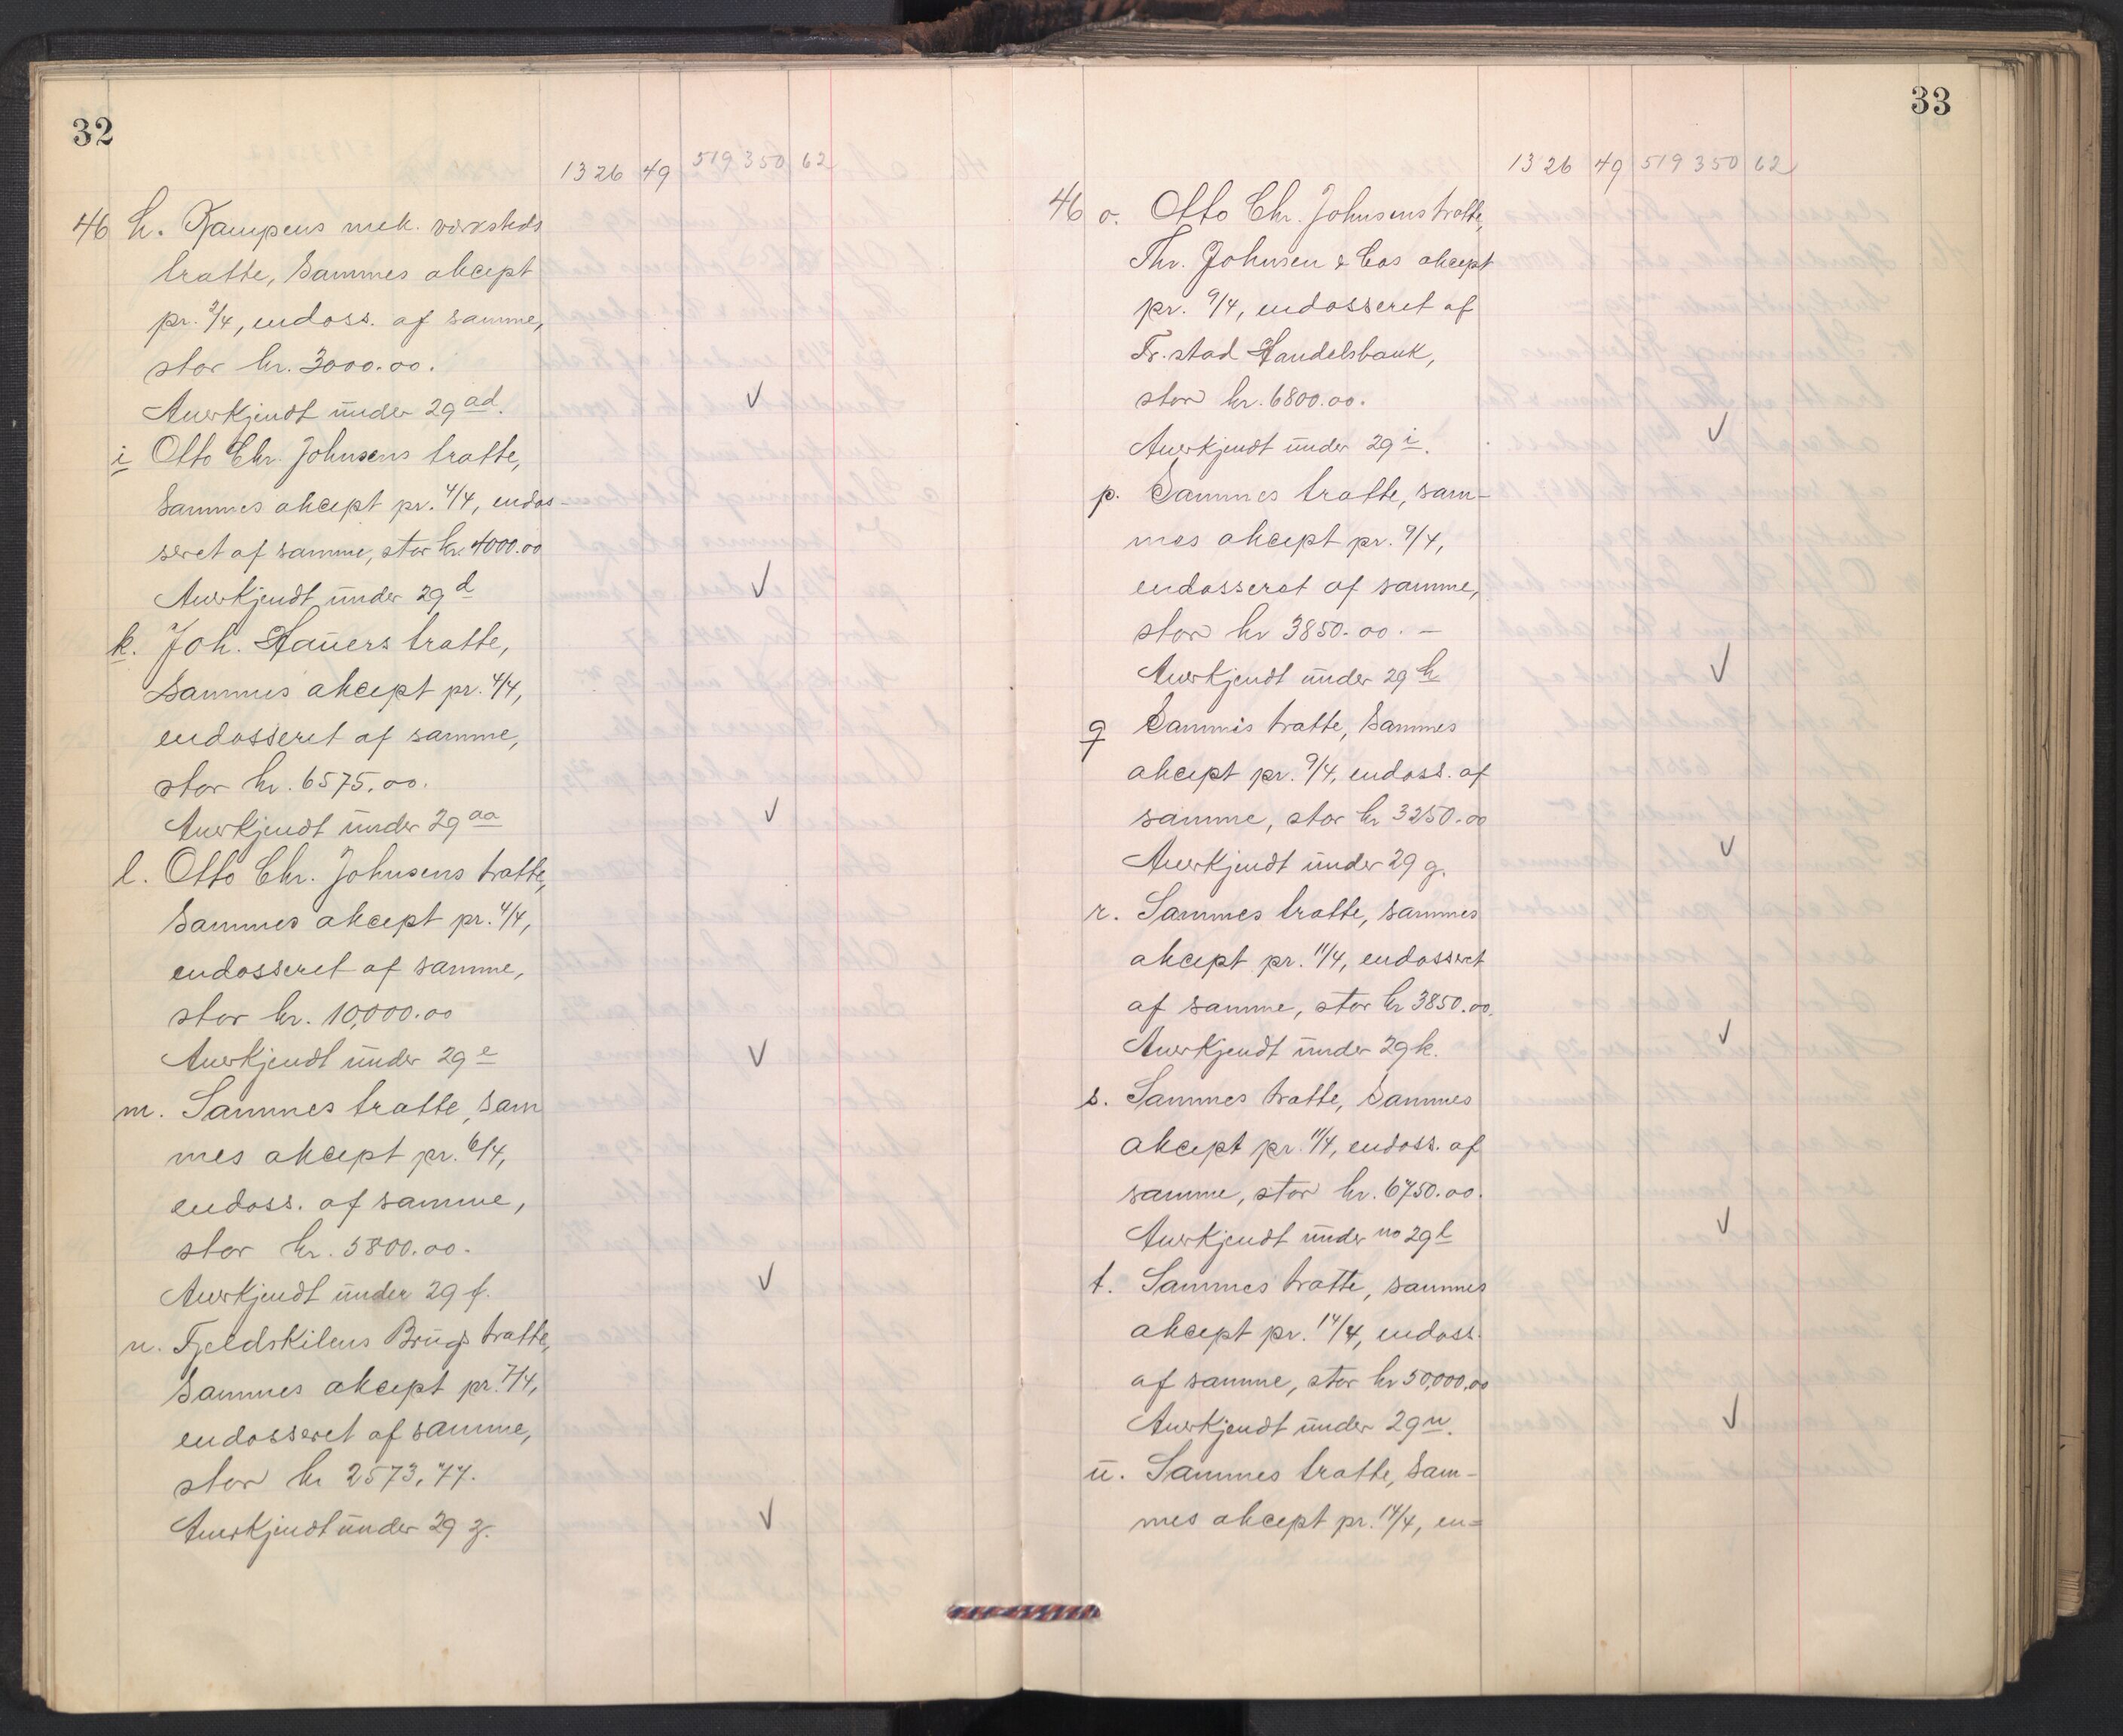 32
13 26 49 519 350 62
46 h. Kampens mek. værksteds
tratte, Sammes akcept
pr. 3/4, endoss. af samme,
stor kr. 3000.00.
Anerkjendt under 29 ad. √
i Otto Chr. Johnsens tratte,
Sammes akcept pr. 4/4, endos-
seret af samme, stor kr 4000.00
Anerkjendt under 29 d √
k. Joh. Hauers tratte,
Sammes akcept pr. 4/4,
endosseret af samme,
stor kr. 6575.00.
Anerkjendt under 29 aa √
l. Otto Chr. Johnsens tratte,
Sammes akcept pr. 4/4,
endosseret af samme,
stor kr. 10,000.00
Anerkjendt under 29 e √
m. Sammes tratte, sam
mes akcept pr. 6/4,
endoss. af samme,
stor kr. 5800.00.
Anerkjendt under 29 f. √
n. Fjeldskilens Brugs tratte,
Sammes akcept pr. 7/4,
endosseret af samme,
stor kr 2573,77.
Anerkjendt under 29 z. √
33
13 26 49 519 350 62
46 o. Otto Chr. Johnsens tratte,
Thv. Johnsen & Cos akcept
pr. 9/4, endosseret af
Fr.stad Handelsbank,
stor kr. 6800.00.
Anerkjendt under 29 i. √
p. Sammes tratte, sam-
mes akcept pr. 9/4,
endosseret af samme,
stor kr 3850.00. —
Anerkjendt under 29 h √
q Sammes tratte, Sammes
akcept pr. 9/4, endoss. af
samme, stor kr 3250.00
Anerkjendt under 29 g. √
r. Sammes tratte, sammes
akcept pr. 11/4, endosseret
af samme, stor kr 3850.00.
Anerkjendt under 29 k. √
s. Sammes tratte, Sammes
akcept pr. 11/4, endoss. af
samme, stor kr. 6750.00.
Anerkjendt under no 29 l √
t. Sammes tratte, sammes
akcept pr. 14/4, endoss.
af samme, stor kr 50,000,00
Anerkjendt under 29 n. √
u. Sammes tratte, Sam-
mes akcept pr. 14/4, en=